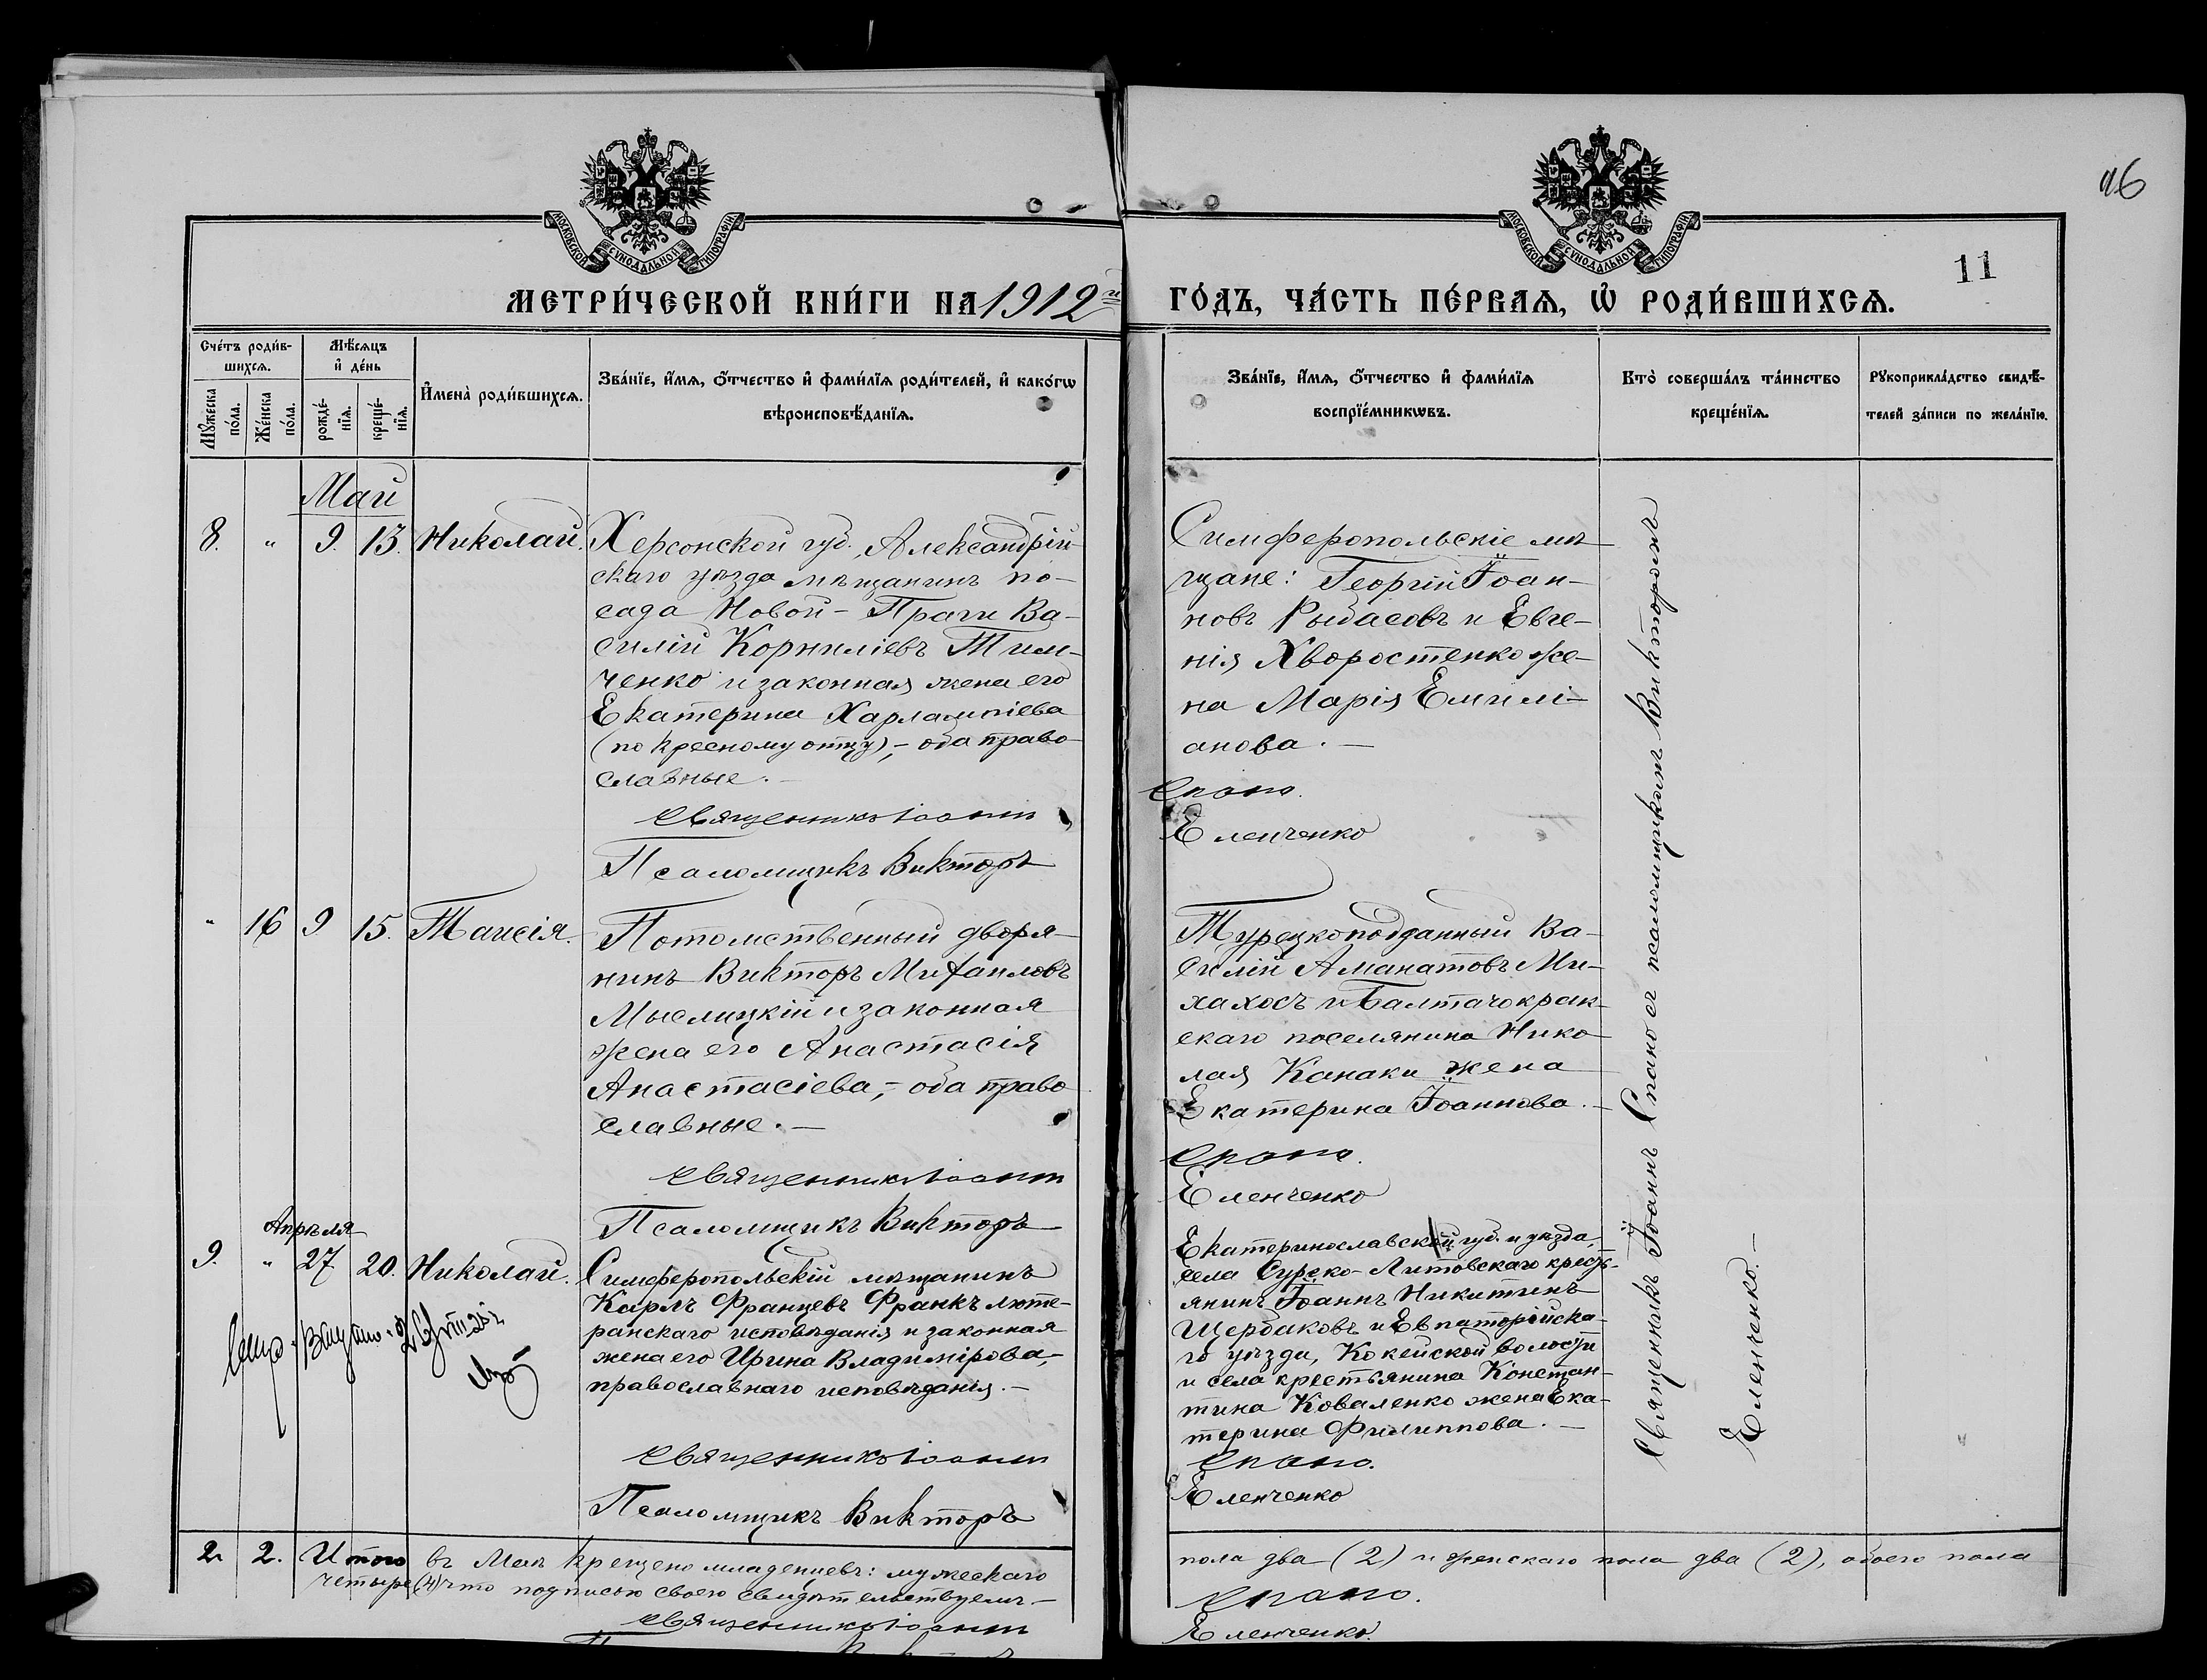 96
МОСКОВСКОЙ СѴНОДАЛЬНОЙ ТИПОГРАФІИ
МОСКОВСКОЙ СѴНОДАЛЬНОЙ ТИПОГРАФІИ
11
МЕТРИ́ЧЕСКОЙ КНИ́ГИ НА 1912й
ГО́ДЪ, ЧА́СТЬ ПЕ́РВАѦ, Ѡ РОДИ́ВШИХСѦ.
Сче́тъ роди́в-
шихсѧ.
Мѣ́сѧцъ
и҆ де́нь
Мꙋжеска
по́ла.
Же́нска
по́ла.
рожде́-
нїѧ.
креще́-
нїѧ.
И҆мена̀ роди́вшихсѧ.
Зва́нїе, и҆́мѧ, ѻ҆́тчество и҆ фами́лїѧ роди́телей, и҆ како́гѡ
вѣроисповѣ́данїѧ.
Зва́нїе, и҆́мѧ, ѻ҆́тчество и҆ фами́лїѧ
воспрїе́мникѡвъ.
Кто̀ соверша́лъ та́инство
креще́нїѧ.
Рꙋкоприкла́дство свидѣ́-
телей за́писи по жела́нїю.
Май
8. " 9. 13. Николай.
Херсонской губ. Александрій-
скаго уѣзда мѣщанинъ по-
сада Новой-Праги Ва-
силій Корниліевъ Тим-
ченко и законная жена его
Екатерина Харлампіева
(по кресному отцу),- оба право-
славные.-
Священникъ Іоаннъ
Псаломщикъ Викторъ
Симферопольскіе мѣ-
щане: Георгій Іоан-
новъ Рыбасовъ и Евге-
нія Хворостенко же-
на Марія Емилі-
анова.-
Спано.
Еленченко
" 16 9 15. Таисія.
Потомственный дворя-
нинъ Викторъ Михаиловъ
Мыслицкій и законная
жена его Анастасія
Анастасіева,- оба право-
славные.-
Священникъ Іоаннъ
Псаломщикъ Викторъ
Турецкоподданный Ва-
силій Аманатовъ Ми-
хахосъ и Балтачокрак-
скаго поселянина Нико-
лая Канаки жена
Екатерина Іоаннова.-
Спано.
Еленченко
Апрѣля
9. " 27 20. Николай.
Симферопольскій мѣщанинъ
Карлъ Францевъ Франкъ люте-
ранскаго исповѣданія и законная
жена его Ирина Владимірова,-
православнаго исповѣданія.-
Священникъ Іоаннъ
Псаломщикъ Викторъ
Екатеринославской губ. и уѣзда,
села Сурско-Литовскаго кресть-
янинъ Іоаннъ Никитинъ
Щербаковъ и Евпаторійска-
го уѣзда, Кокейской волости
и села крестьянина Констан-
тина Коваленко жена Ека-
терина Филиппова.-
Спано.
Еленченко
Священникъ Іоаннъ Спано съ псаломщикомъ Викторомъ
Еленченко.-
2. 2. Итого въ Маѣ крещено младенцевъ: мужескаго
пола два (2) и женскаго пола два (2), обоего пола
четыре (4) что подписью своею свидѣтельствуемъ-
Священникъ Іоаннъ
Спано.
Еленченко.